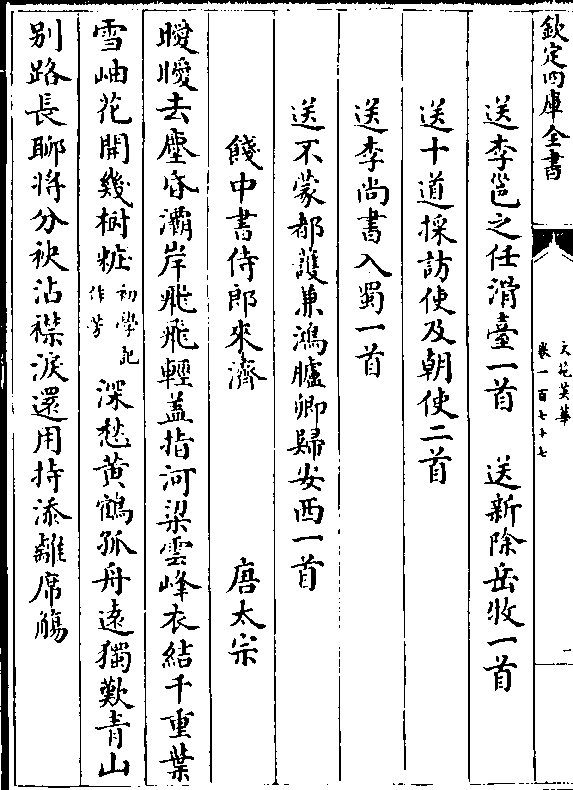 欽定四庫全書
文苑英華
卷一百七十七
二
送李邕之任滑臺一首　送新除岳牧一首
送十道採訪使及朝使二首
送李尚書入蜀一首
送不蒙都護兼鴻臚卿歸安西一首
餞中書侍郎來濟　唐太宗
曖曖去塵昏灞岸飛飛輕蓋指河梁雲峰衣結千重葉
雪岫花開幾樹粧初學記作芳深愁黃鶴孤舟遠獨歎青山
别路長聊將分袂沾襟淚還用持添離席觴